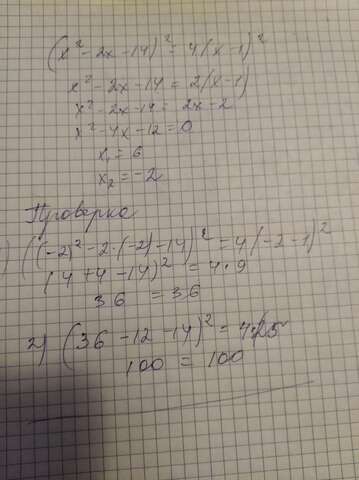 (x² - 2x - 14)² = 4(x - 1)²
x² - 2x - 14 = 2(x - 1)
x² - 2x - 14 = 2x - 2
x² - 4x - 12 = 0
x₁ = 6
x₂ = -2
Проверка
) ((-2)² - 2·(-2) - 14)² = 4(-2 - 1)²
(4 + 4 - 14)² = 4·9
36 = 36
2) (36 - 12 - 14)² = 4·25
100 = 100